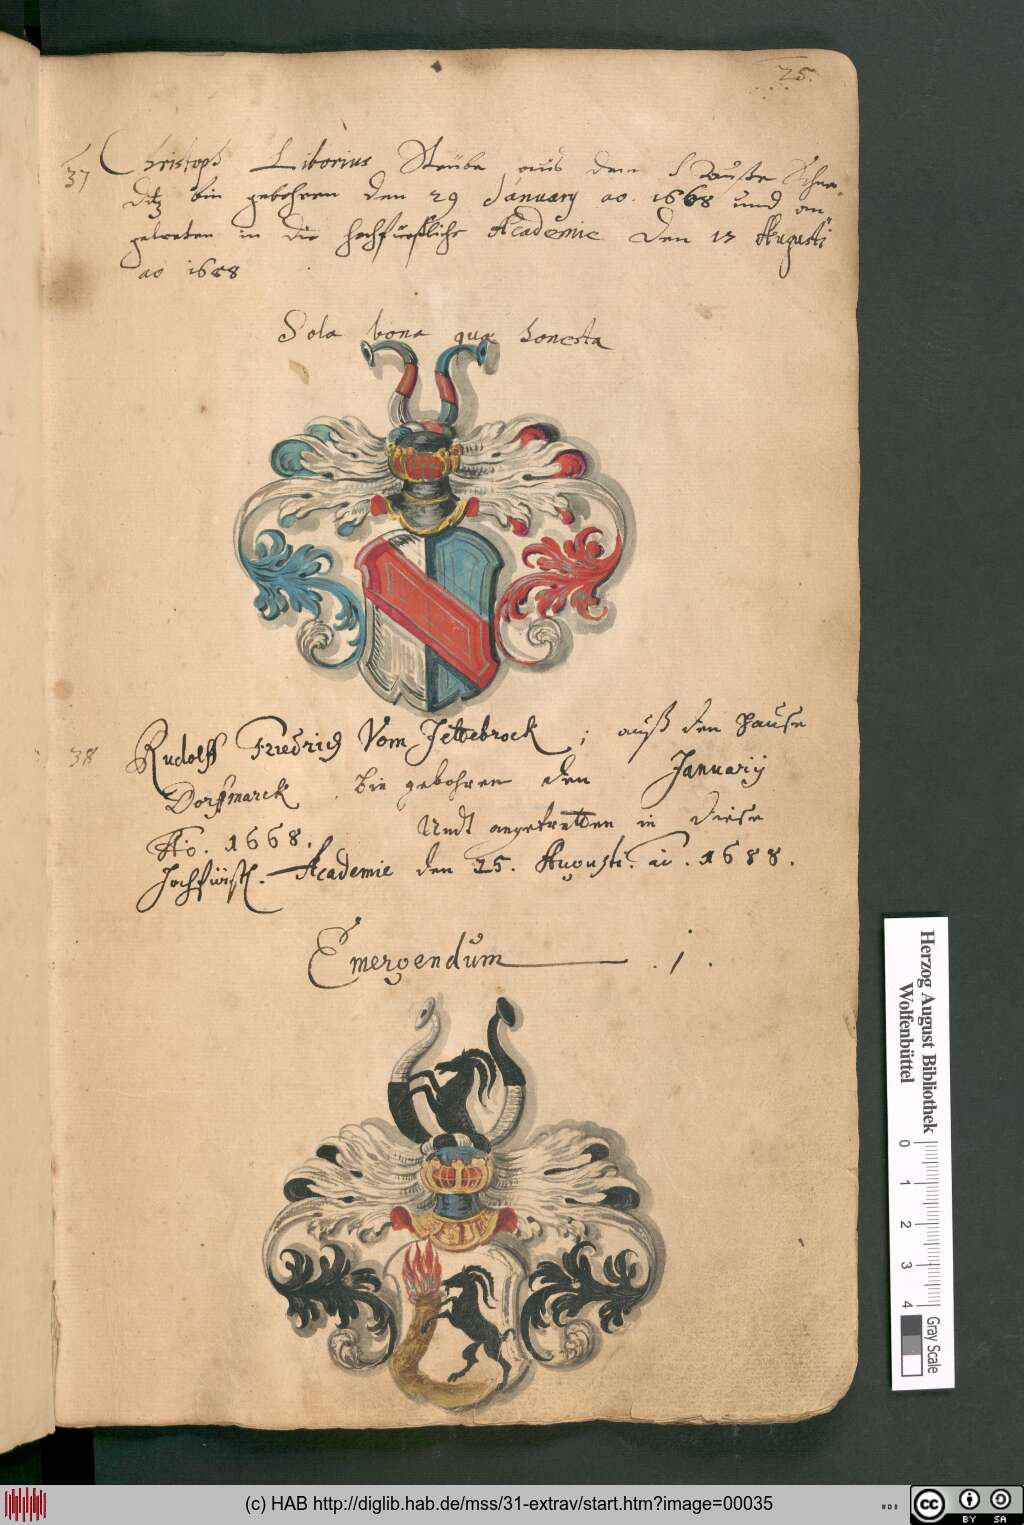 25.
37 Christoph Liborius Steübe aus dem Hauße Schne-
ditz bin gebohren den 29 January ao. 1668 und an
getreten in die hochfürstliche Academie den 13 Augusti
ao 1688
Sola bona quæ honesta
38 Rudolff Friedrich Vom Jettebrock ; auß den Hause
Dorffmarck bin gebohren den Januarij
Ao. 1668. Undt angetretten in diese
Hochfürstl. Academie den 25. Augusti. ao. 1688.
Emergendum . j .
Herzog August Bibliothek
Wolfenbüttel
0 1 2 3 4
Gray Scale
(c) HAB http://diglib.hab.de/mss/31-extrav/start.htm?image=00035
CC
BY SA